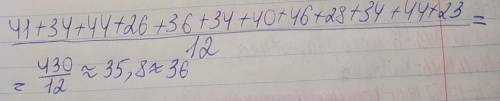 41+34+44+26+36+34+40+46+28+34+44+23 =
12
= 430/12 ≈ 35,8 ≈ 36